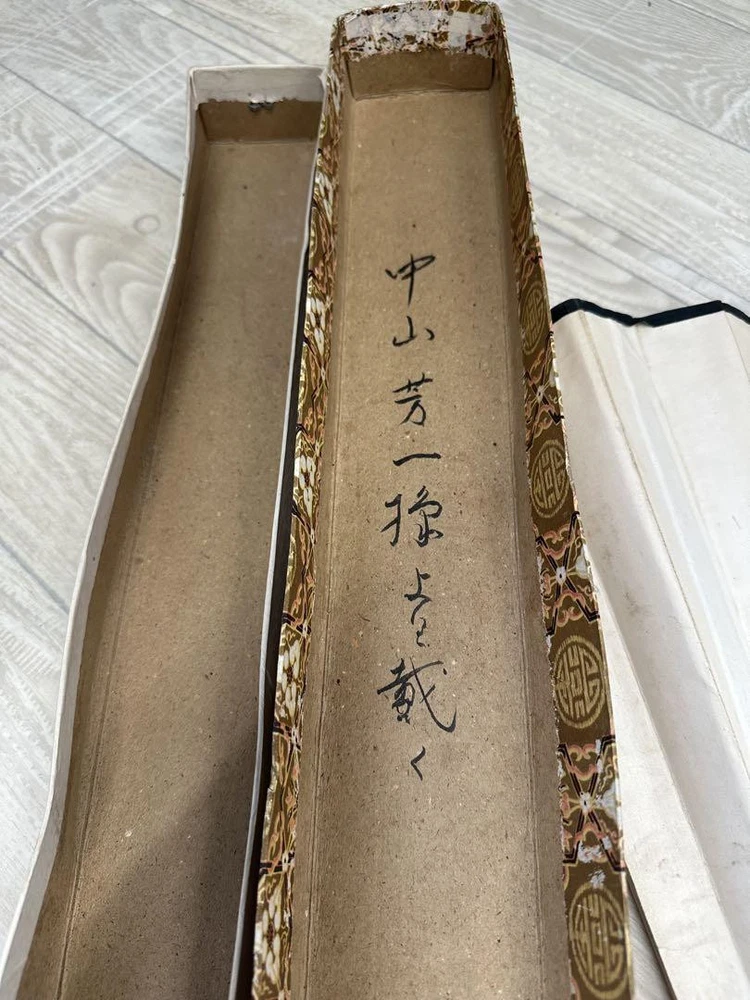 中山芳一様より戴く